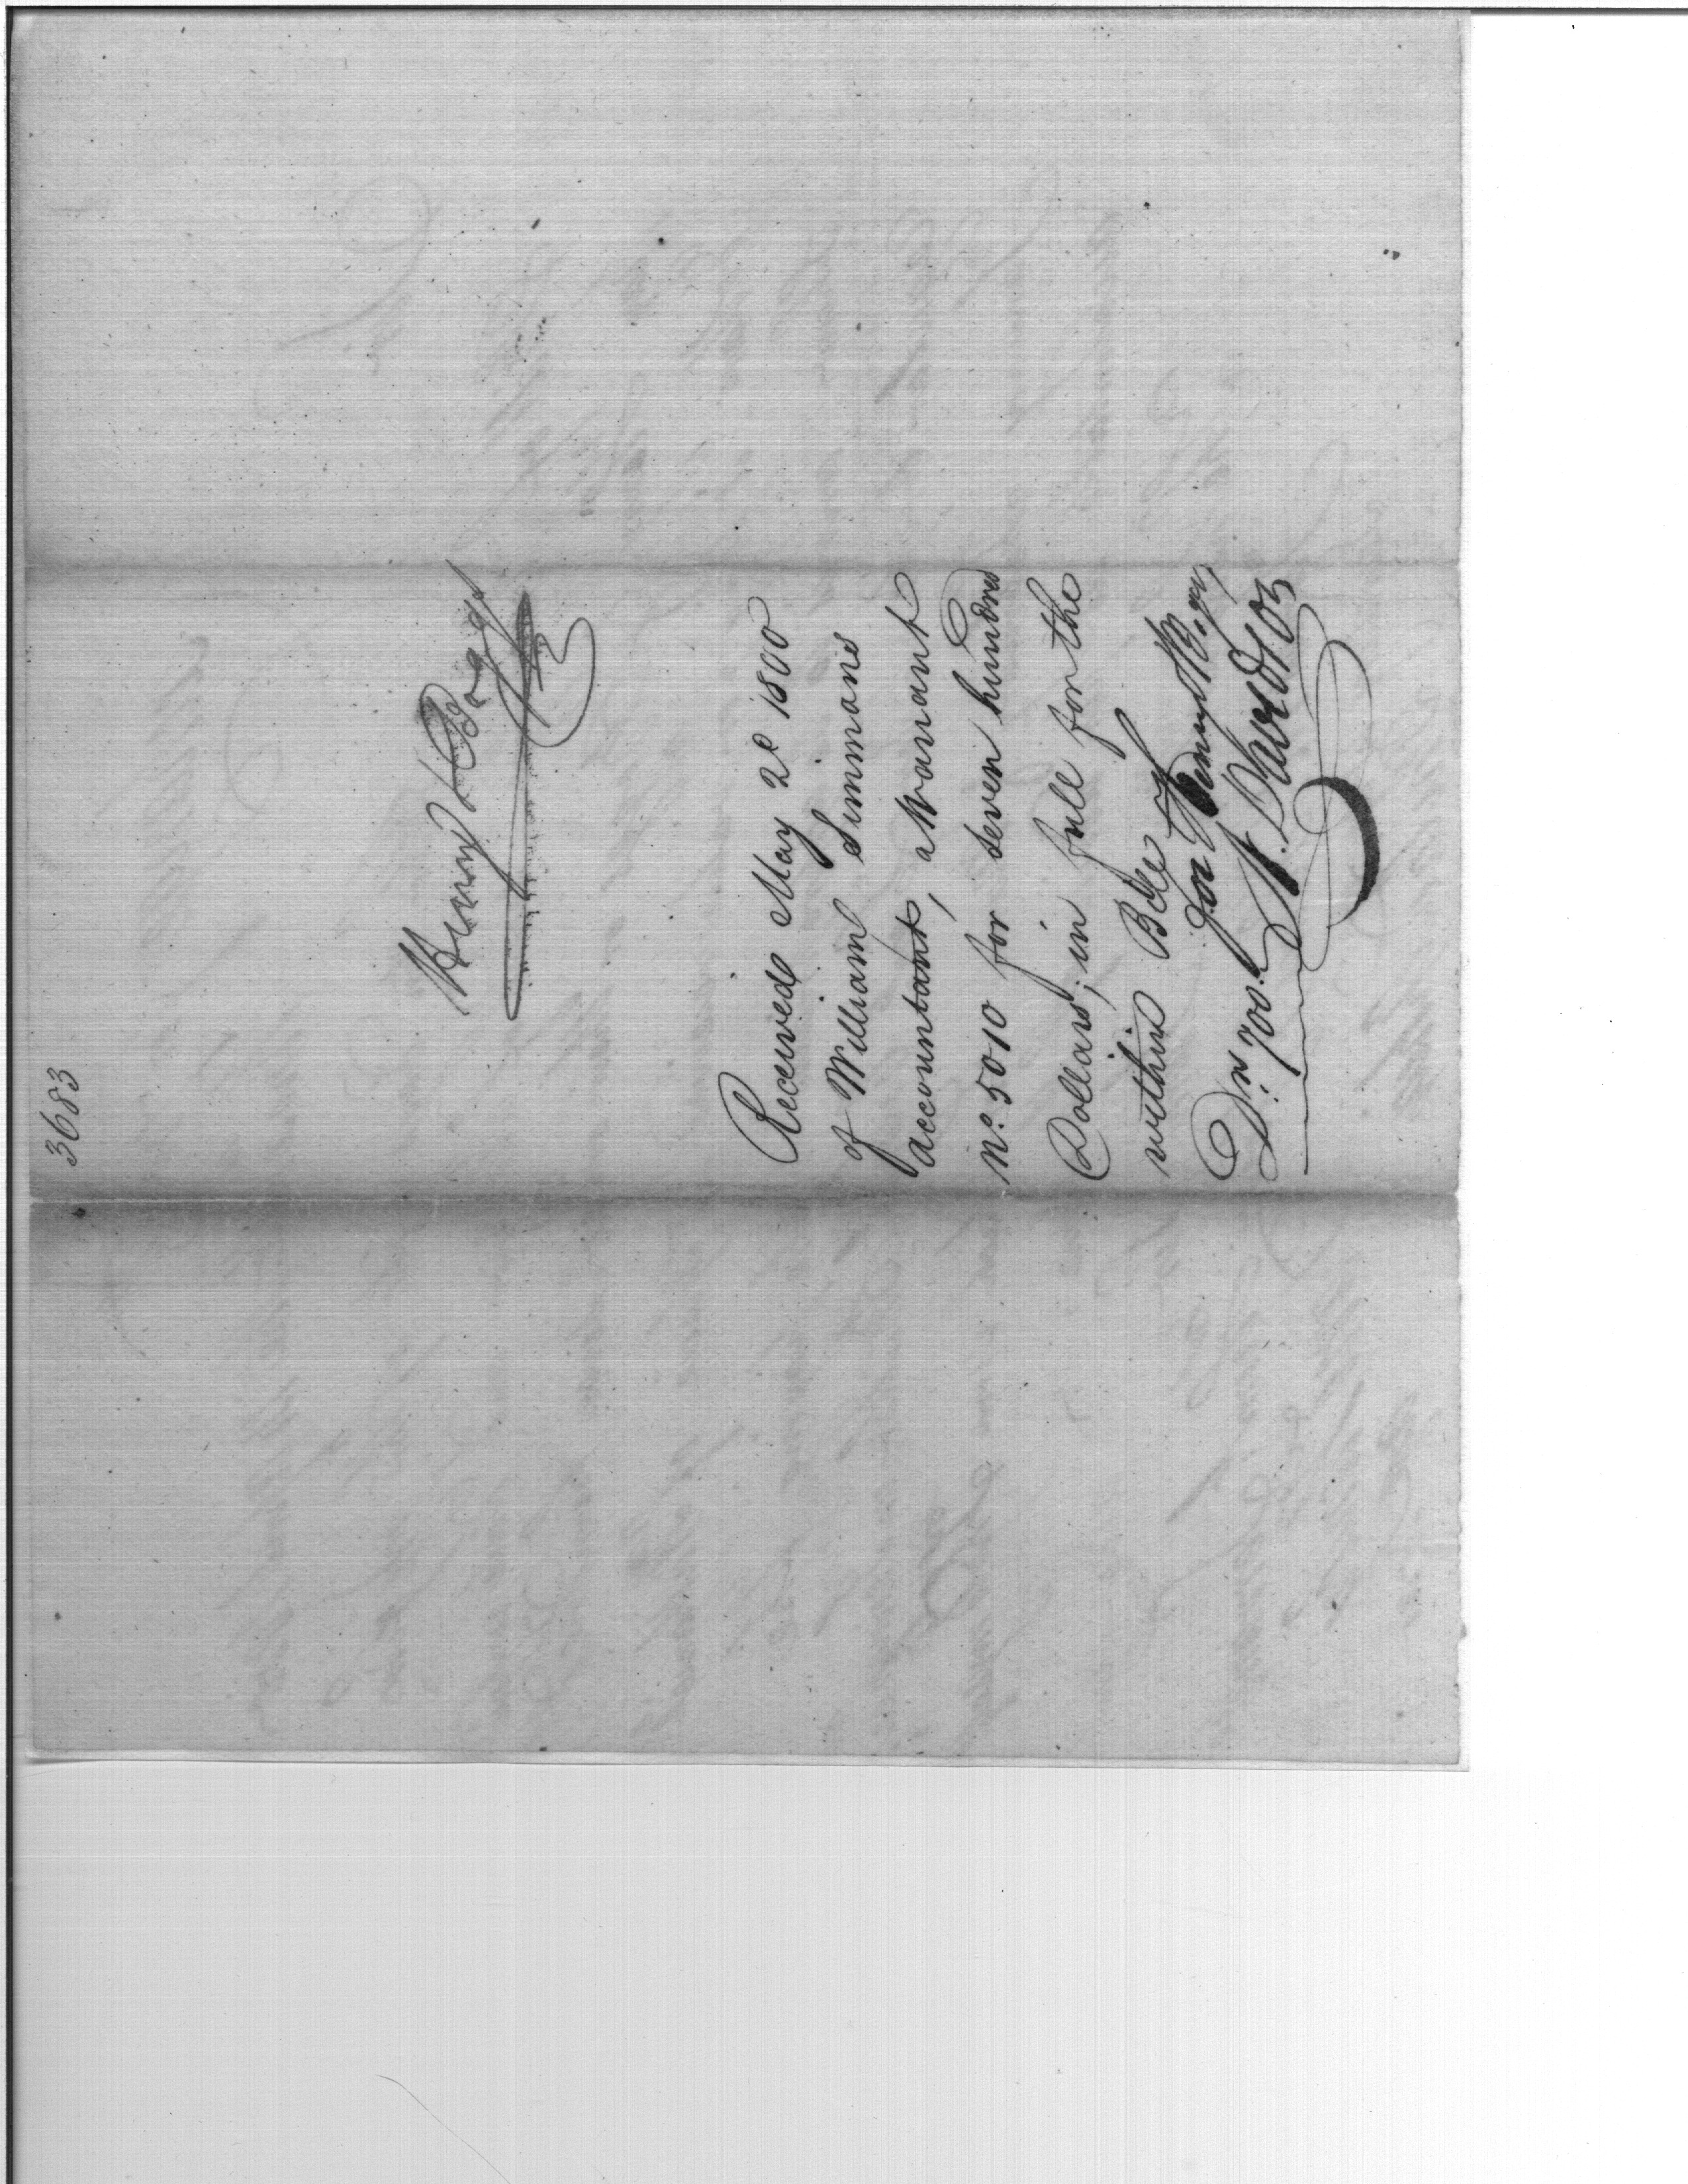 3683
Henry Boggs
Received May 2d 1800
of William Simmons
accountant, a Warrant
No. 5010 for seven hundred
Dollars, in full for the
within Bill
for Henry Boggs
Drs. 700.